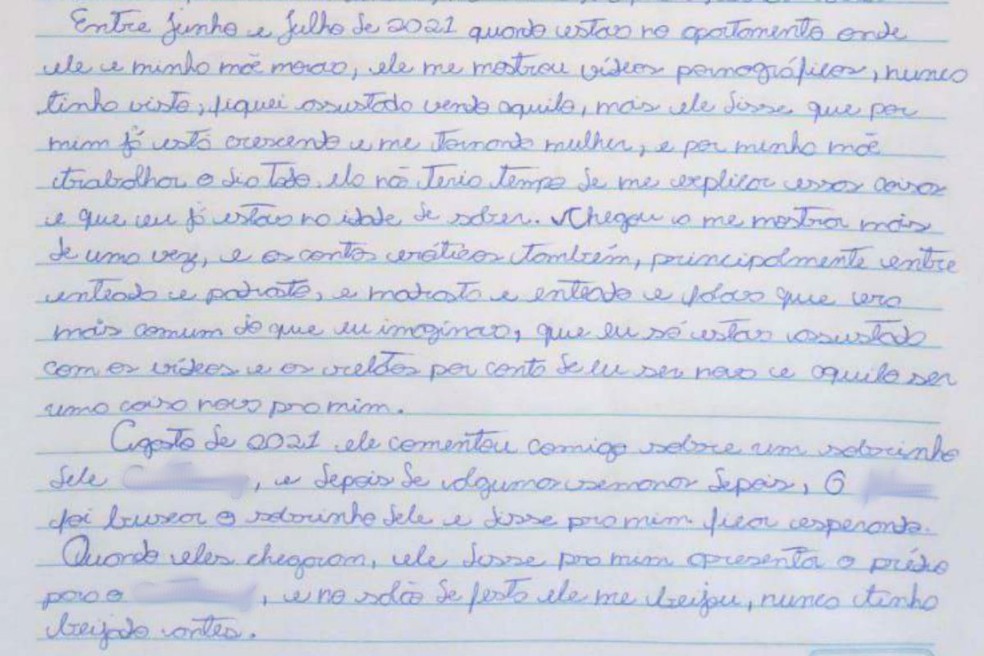 Entre junho e julho de 2021 quando estava no apartamento onde
ele e minha mãe morava, ele me mostrou vídeos pornográficos, nunca
tinha visto, fiquei assustada vendo aquilo, mais ele disse que por
mim já está crescendo e me tornando mulher, e por minha mãe
trabalhar o dia todo, ela não teria tempo de me explicar essas coisas
e que eu já estava na idade de saber. Chegou a me mostrar mais
de uma vez, e os contos eróticos também, principalmente entre
enteada e padrasto, e madrasta e enteado e falava que era
mais comum do que eu imaginava, que eu só estava assustada
com os vídeos e os por conta de eu ser nova e aquilo ser
uma coisa nova pra mim.
Agosto de 2021 ele comentou comigo sobre um sobrinho
dele , e depois de algumas semanas depois, O
foi buscar o sobrinho dele e disse pra mim ficar esperando.
Quando eles chegaram, ele disse pra mim apresenta o prédio
para o , e no salão de festa ele me beijou, nunca tinha
beijado antes.